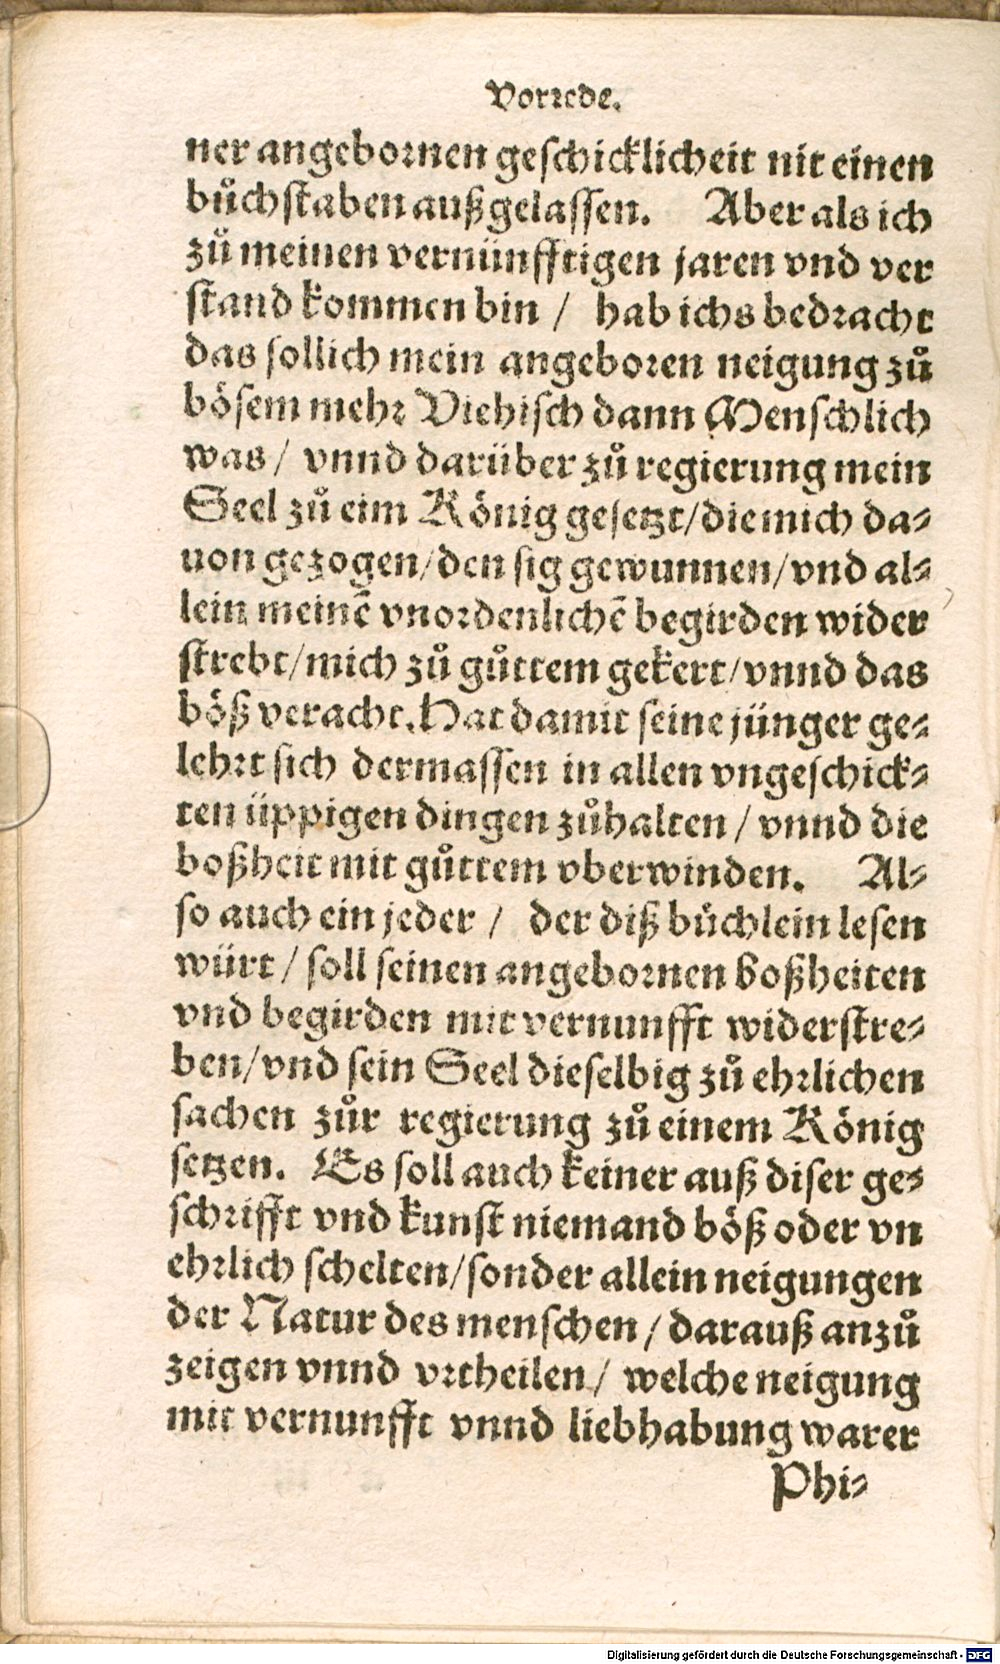 Vorrede.
ner angebornen geschickligkeit nit einen
bůchstaben außgelassen. Aber als ich
zů meinen vernünfftigen jaren vnd ver
stand kommen bin / hab ichs bedracht
das sollich mein angeboren neigung zů
bösem mehr Viehisch dann Menschlich
was / vnnd darüber zů regierung mein
Seel zů eim König gesetzt/die mich da-
uon gezogen/den sig gewunnen/vnd al-
lein meinē vnordenlichē begirden wider
strebt/mich zů gůttem gekert/vnnd das
böß veracht. Hat damit seine jünger ge-
lehrt sich dermassen in allen vngeschick-
ten üppigen dingen zůhalten / vnnd die
boßheit mit gůttem vberwinden. Al-
so auch ein jeder / der diß bůchlein lesen
würt / soll seinen angebornen boßheiten
vnd begirden mit vernunfft widerstre-
ben/vnd sein Seel dieselbig zů ehrlichen
sachen zůr regierung zů einem König
setzen. Es soll auch keiner auß diser ge-
schrifft vnd kunst niemand böß oder vn
ehrlich schelten/sonder allein neigungen
der Natur des menschen / darauß anzů
zeigen vnnd vrtheilen / welche neigung
mit vernunfft vnnd liebhabung warer
Phi-
Digitalisierung gefördert durch die Deutsche Forschungsgemeinschaft - DFG